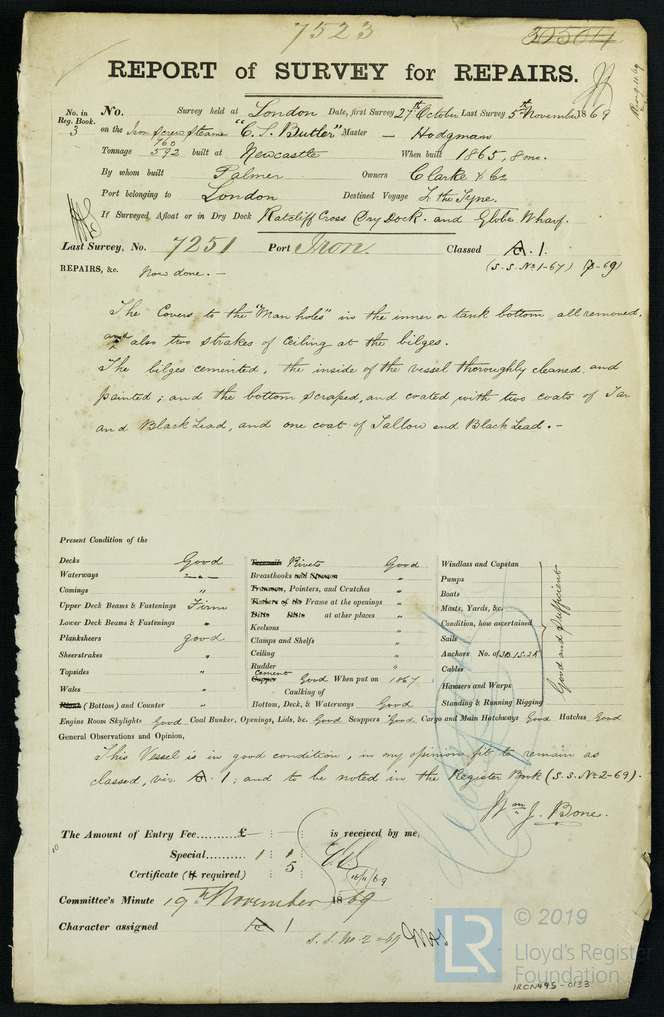 7523
30504
REPORT of SURVEY for REPAIRS.
No. in Reg. Book. 3
No. Survey held at London Date, first Survey 27th October Last Survey 5th November 1869
on the Iron Screw Steamer "C. S. Butler" Master — Hodgman
Tonnage 760 592 built at Newcastle When built 1865, 8 mo.
By whom built Palmer Owners Clarke & Co
Port belonging to London Destined Voyage To the Tyne.
If Surveyed Afloat or in Dry Dock Ratcliff Cross Dry Dock. and Globe Wharf.
Last Survey, No. 7251 Port Iron. Classed A. 1.
(S.S. No 1-67) (9-69)
REPAIRS, &c. Now done. —
The Covers to the "Man holes" in the inner or tank bottom all removed,
and also two strakes of Ceiling at the bilges.
The bilges cemented, the inside of the vessel thoroughly cleaned and
painted; and the bottom scraped, and coated with two coats of Tar
and Black Lead, and one coat of Tallow and Black Lead. —
Present Condition of the
Decks Good
Waterways — " —
Comings "
Upper Deck Beams & Fastenings Firm
Lower Deck Beams & Fastenings "
Planksheers good
Sheerstrakes "
Topsides "
Wales "
Plank (Bottom) and Counter "
Treenails Rivets Good
Breasthooks and Sponson "
Transoms, Pointers, and Crutches "
Timbers of the Frame at the openings "
Ditto Ditto at other places "
Keelsons "
Clamps and Shelfs "
Ceiling "
Rudder "
Cement
Copper Good When put on 1867
Caulking of
Bottom, Deck, & Waterways Good
Windlass and Capstan
Pumps
Boats
Masts, Yards, &c.
Condition, how ascertained
Sails
Anchors No. of 3B. 1S. 2K
Cables
Hawsers and Warps
Standing & Running Rigging
Good and Sufficient
Engine Room Skylights Good Coal Bunker, Openings, Lids, &c. Good Scuppers Good Cargo and Main Hatchways Good Hatches Good
General Observations and Opinion,
This Vessel is in good condition, in my opinion fit to remain as
classed, viz A. 1; and to be noted in the Register Book (S.S. No 2-69). —
Wm J. Bone.
The Amount of Entry Fee..........£ — : — : is received by me,
Special.......... 1 : 1
Certificate (if required) 5
16/11/69
Committee's Minute 19th November 1869
Character assigned A 1
S.S. No 2-69
LR
© 2019
Lloyd's Register
Foundation
IRON495-0133